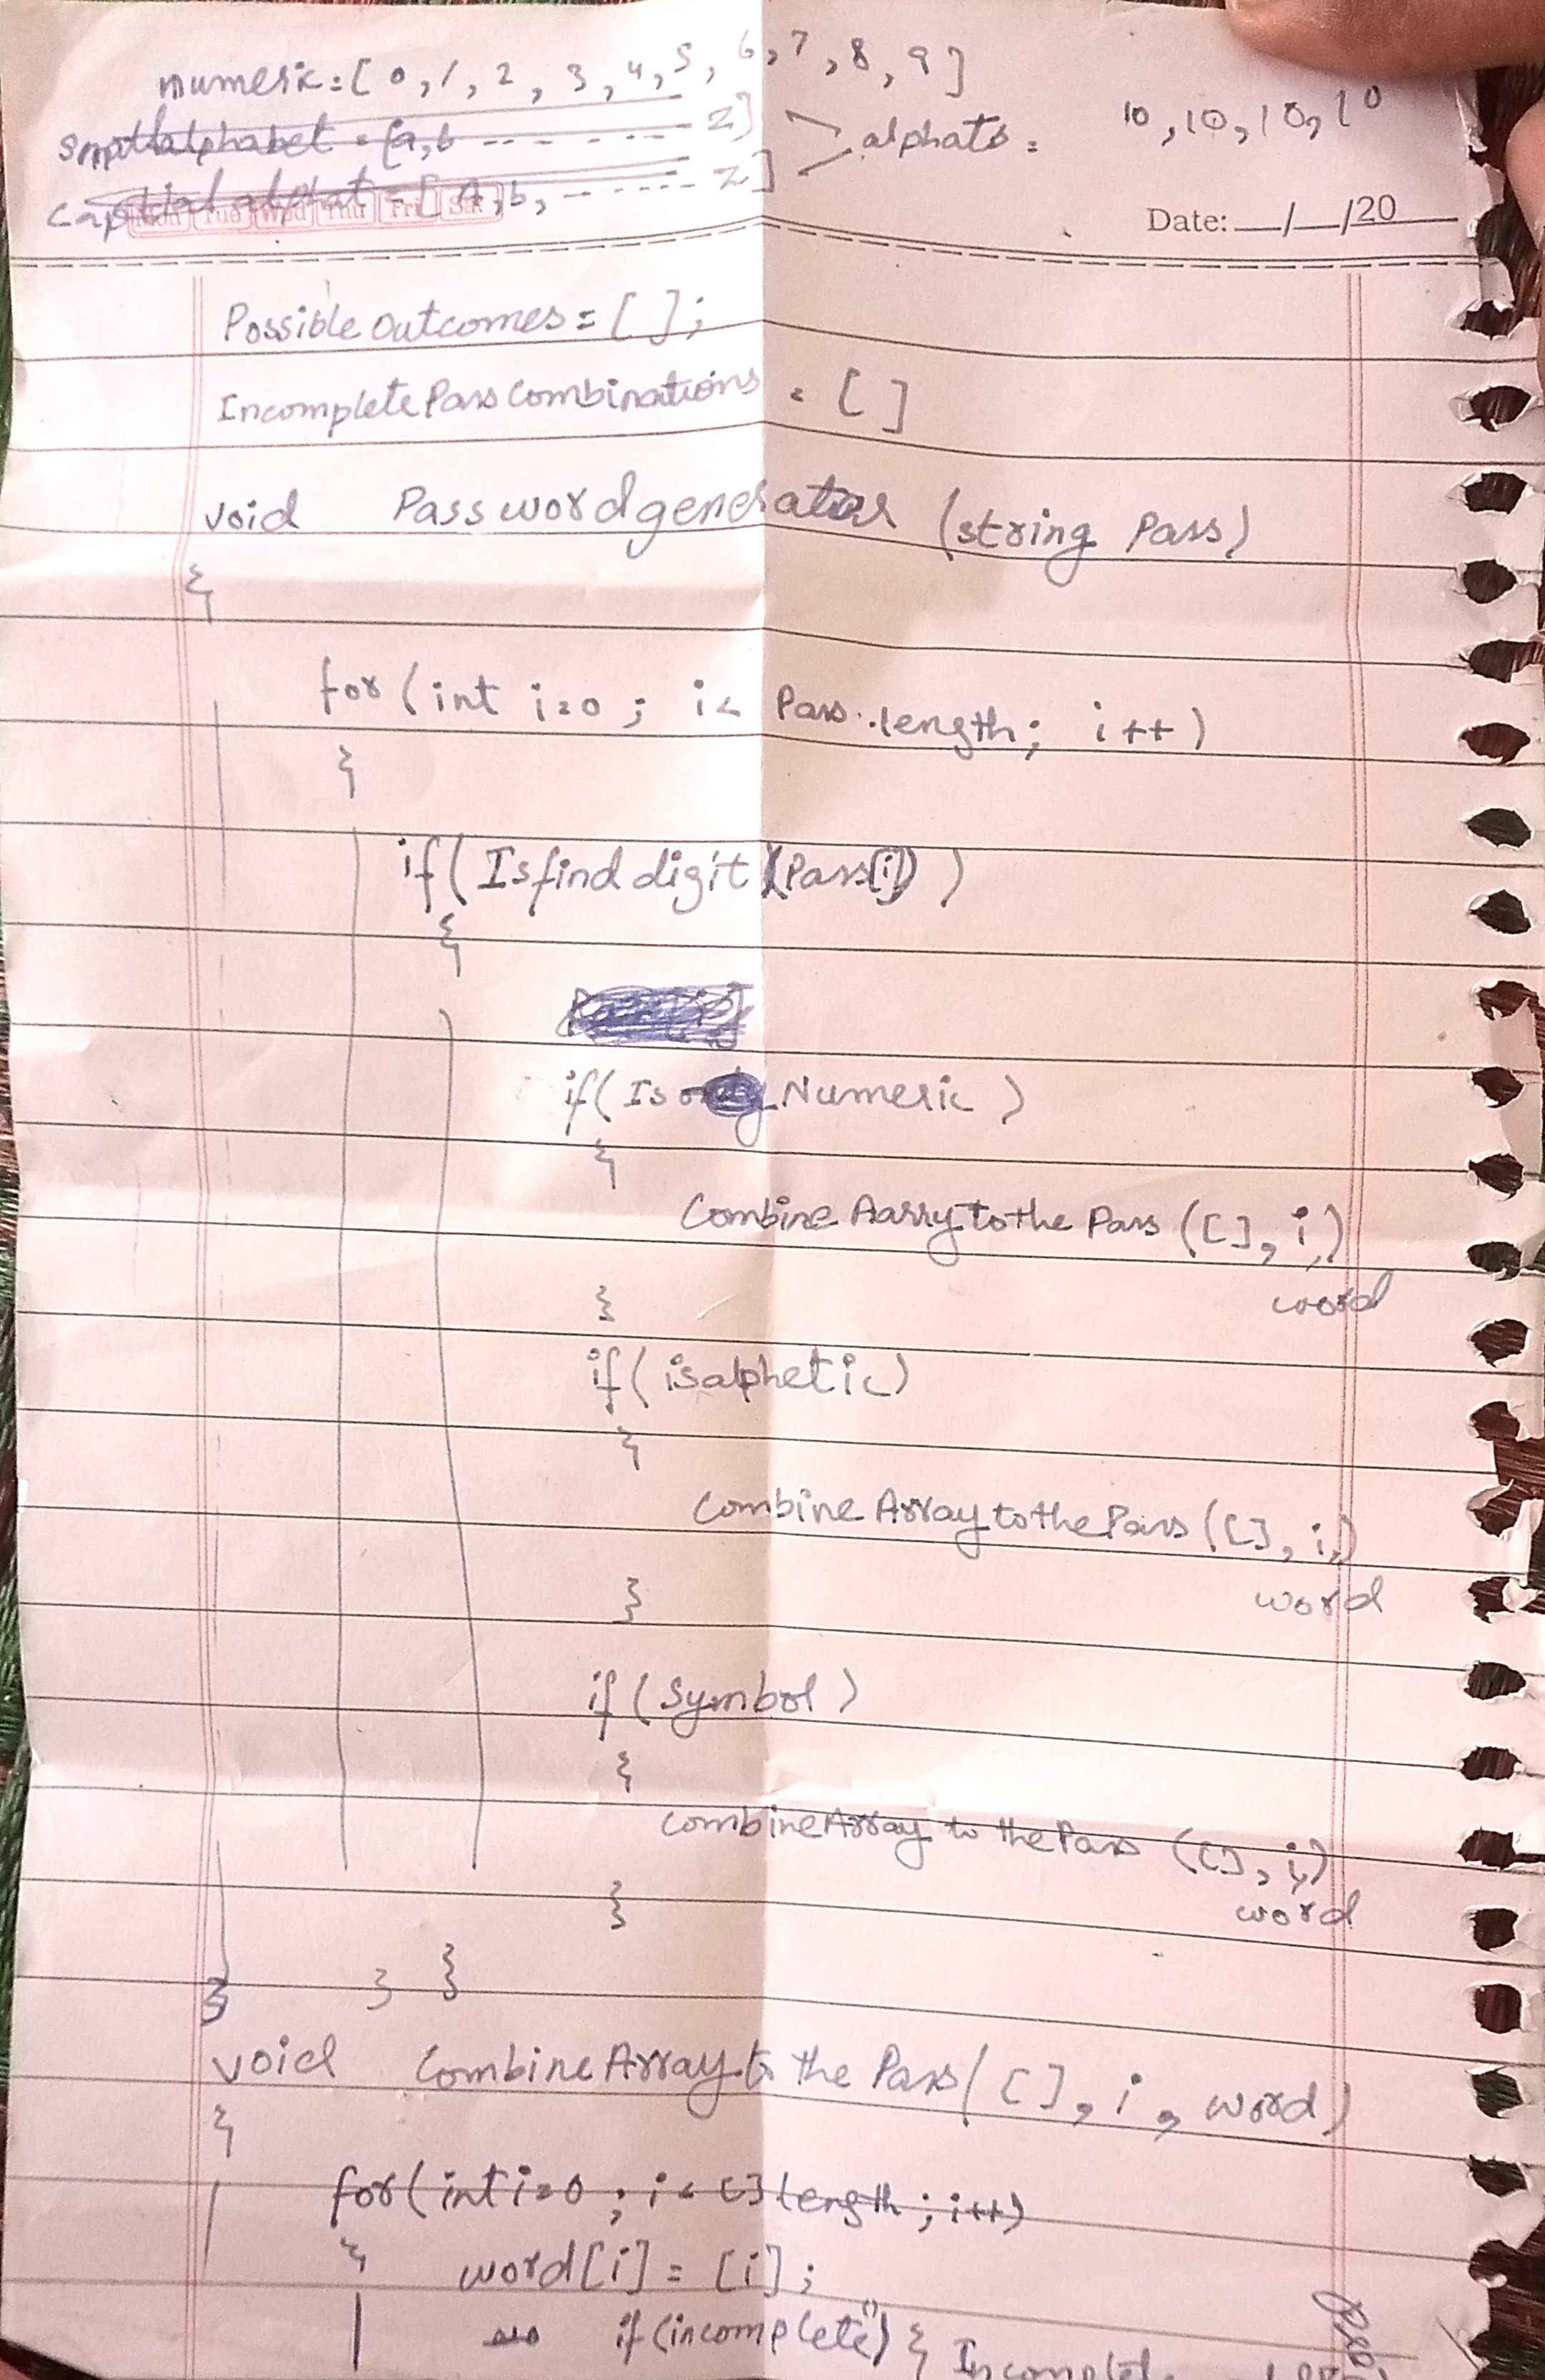 numeric = [ 0, 1, 2, 3, 4, 5, 6, 7, 8, 9 ]
alphabet = [a, b - - - - - - - z]
capital alphat = [ A, b, - - - - - - - z ]
alphats =
10, 10, 10, 10
Mon Tue Wed Thu Fri Sat
Date: __/__/20
Possible Outcomes = [ ];
Incomplete Pass Combinations = [ ]
void Password generator (string Pass)
{
for ( int i=0 ; i< Pass.length; i++ )
{
if( Isfind digit (Pass[i]) )
{
if( Is Numeric )
{
Combine Aarry to the Pass ( [ ], i,)
word
}
if( isalphetic)
{
Combine Array to the Pass ( [ ], i,)
word
}
if ( Symbol )
{
Combine Array to the Pass ( [ ], i,)
word
}
} } }
void Combine Array to the Pass( [ ], i , word )
{
for( int i=0 ; i< [ ] length ; i++)
{
word[i] = [i] ;
if (incomplete") { Incomplet